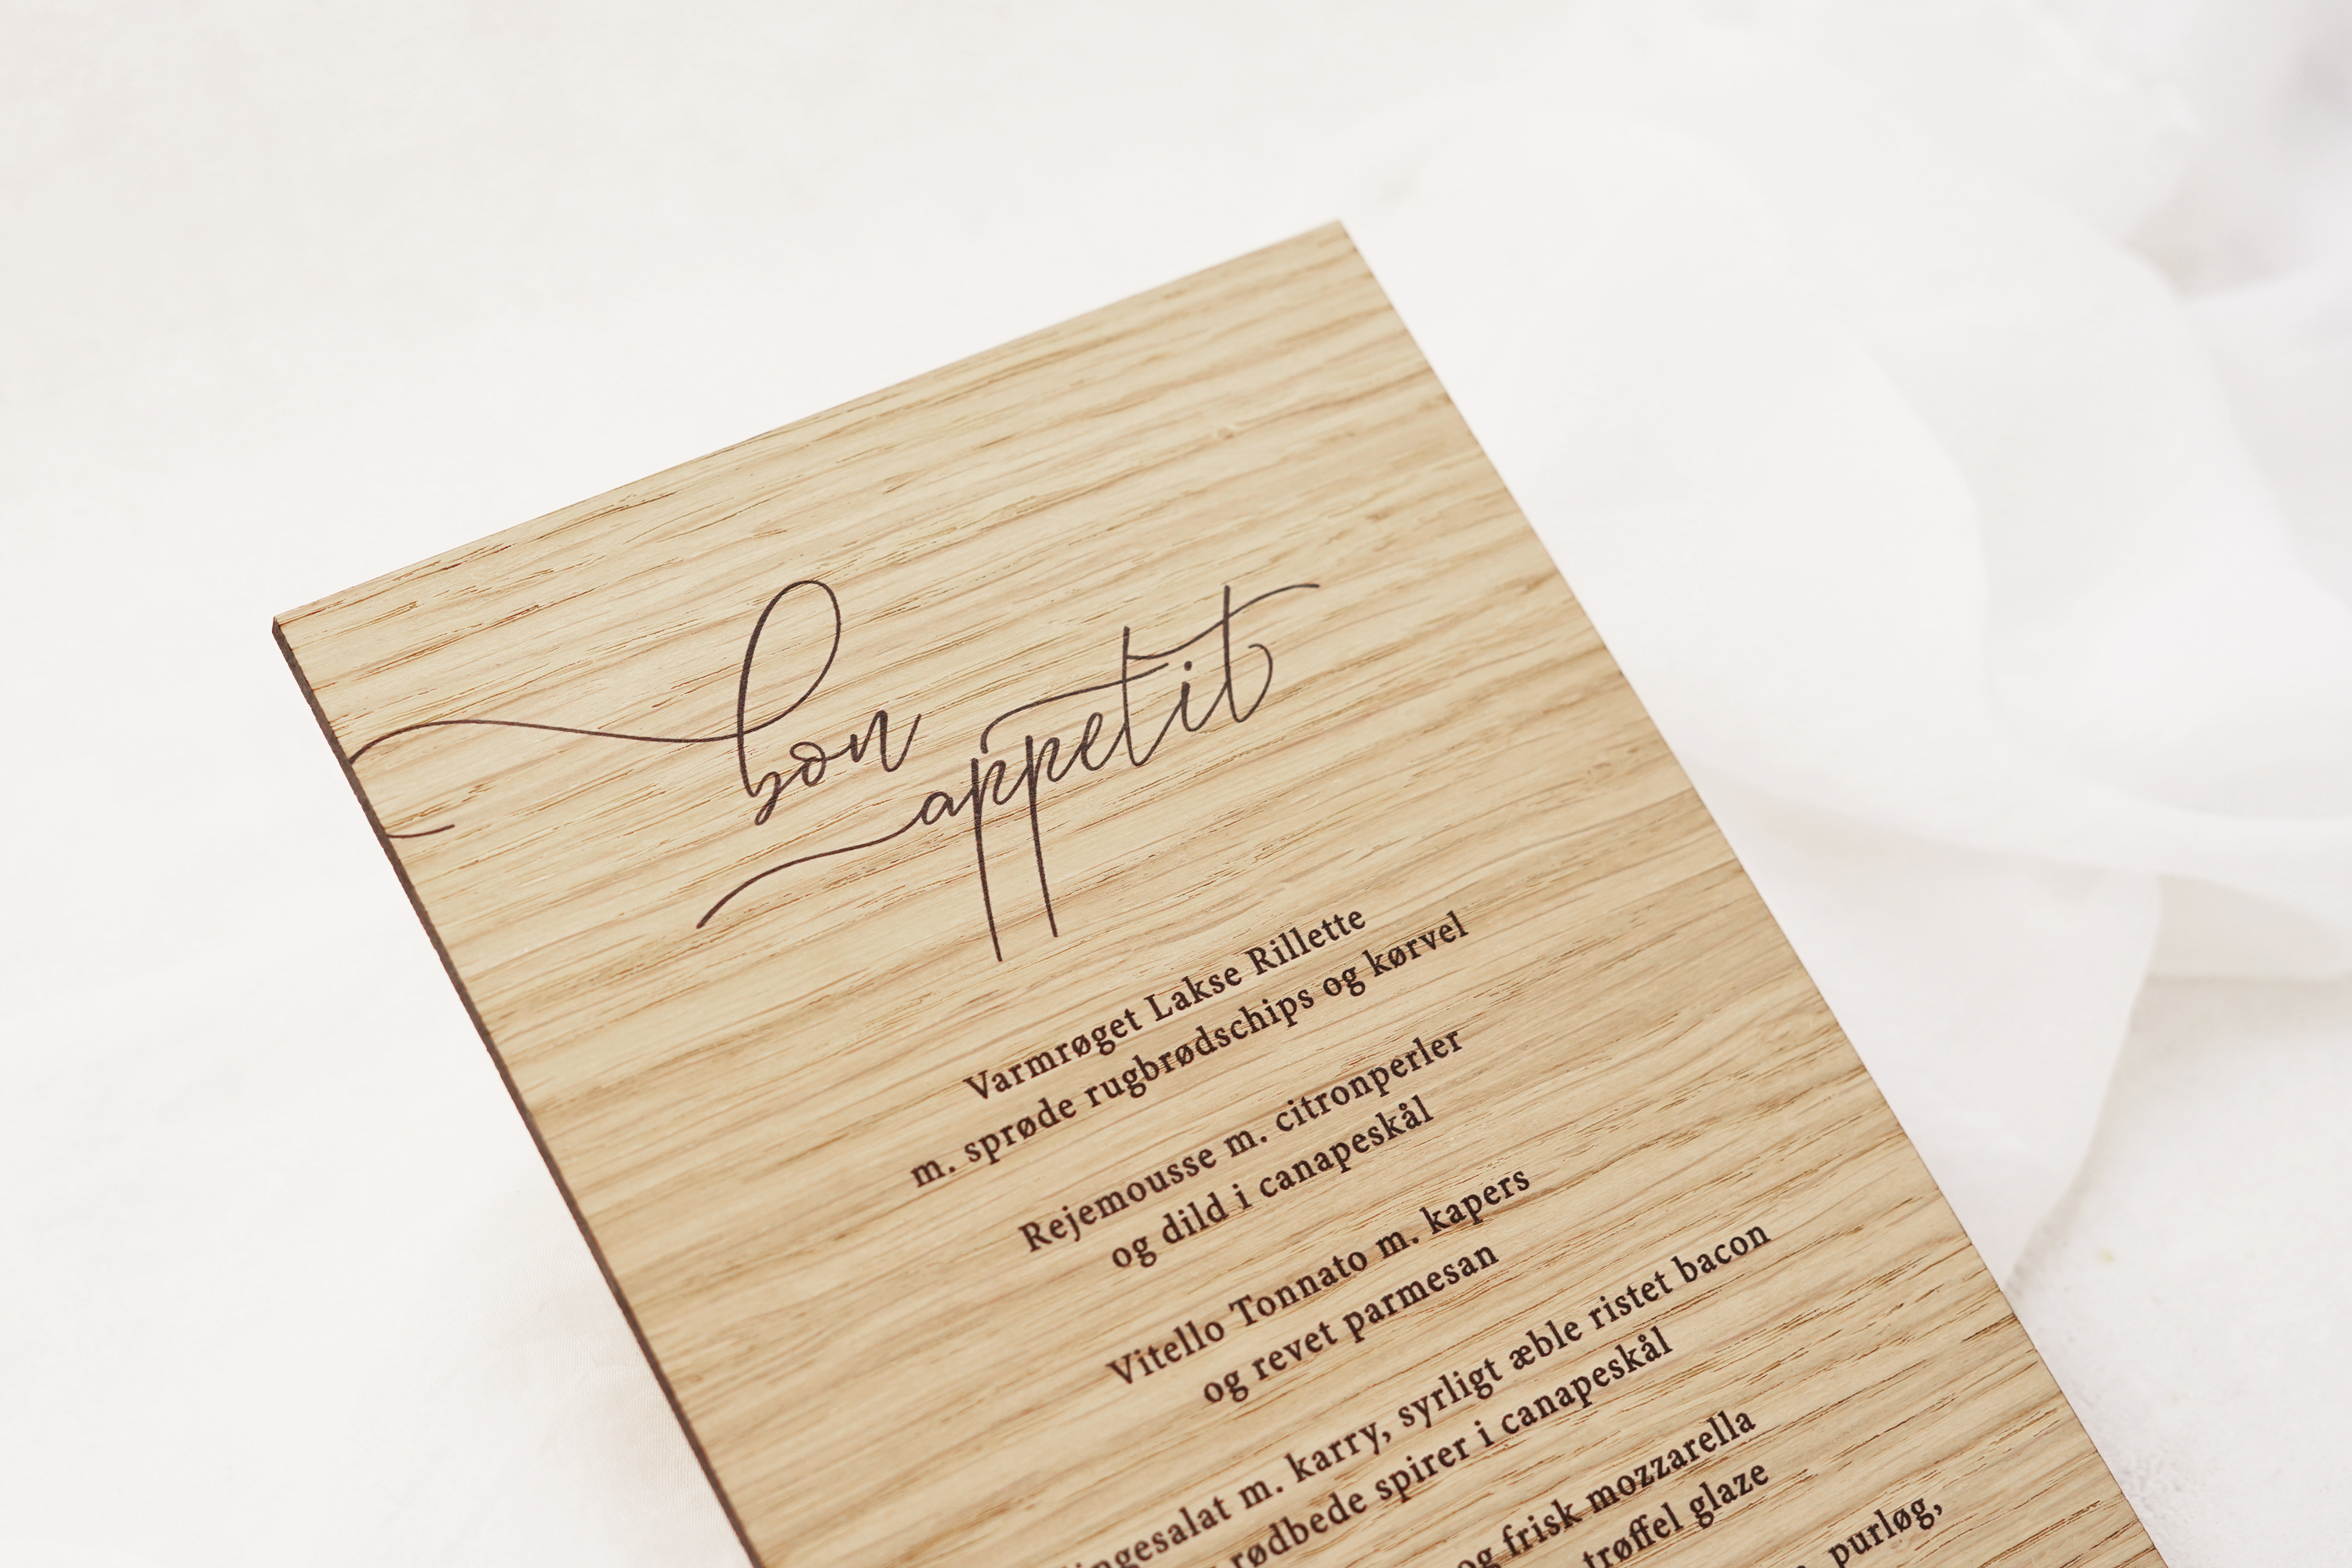 bon
appetit
Varmrøget Lakse Rillette
m. sprøde rugbrødschips og kørvel
Rejemousse m. citronperler
og dild i canapeskål
Vitello Tonnato m. kapers
og revet parmesan
m. karry, syrligt æble ristet bacon
rødbede spirer i canapeskål
og frisk mozzarella
trøffel glaze
purløg,